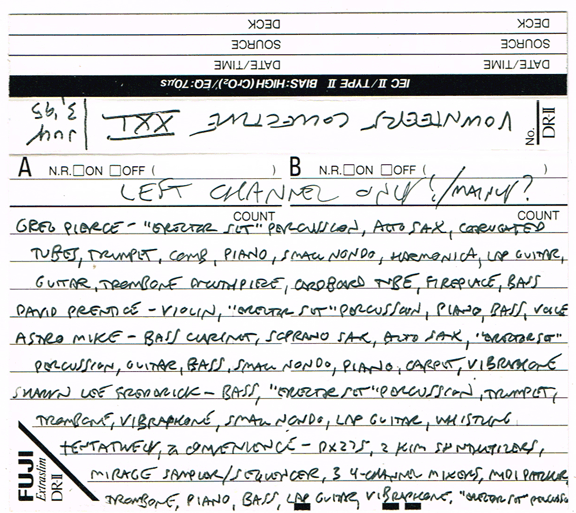 DECK DECK
SOURCE SOURCE
DATE/TIME DATE/TIME
IEC II/TYPE II BIAS:HIGH (CrO₂)/EQ:70μs
No. DR-II
VOLUNTEERS COLLECTIVE XXI
JULY 3, '95
A N.R.□ON □OFF ( ) B N.R.□ON □OFF ( )
LEFT CHANNEL ONLY?/MAINLY?
COUNT COUNT
GREG PIERCE - "ERECTOR SET" PERCUSSION, ALTO SAX, CORRUGATED
TUBES, TRUMPET, COMB, PIANO, SMALL NONDO, HARMONICA, LAP GUITAR,
GUITAR, TROMBONE MOUTHPIECE, CARDBOARD TUBE, FIREPLACE, BASS
DAVID PRENTICE - VIOLIN, "ERECTOR SET" PERCUSSION, PIANO, BASS, VOICE
ASTRO MIKE - BASS CLARINET, SOPRANO SAX, ALTO SAX, "ERECTOR SET"
PERCUSSION, GUITAR, BASS, SMALL NONDO, PIANO, CARPET, VIBRAPHONE
SHAWN LEE FREDERICK - BASS, "ERECTOR SET" PERCUSSION, TRUMPET,
TROMBONE, VIBRAPHONE, SMALL NONDO, LAP GUITAR, WHISTLING
TENTATIVELY, A CONVENIENCE - DX27S, 2 KIM SYNTHESIZERS,
MIRAGE SAMPLER/SEQUENCER, 3 4-CHANNEL MIXERS, MIDI PATCHER,
TROMBONE, PIANO, BASS, LAP GUITAR, VIBRAPHONE, "ERECTOR SET" PERCUSSION
FUJI
Extraslim
DR-II